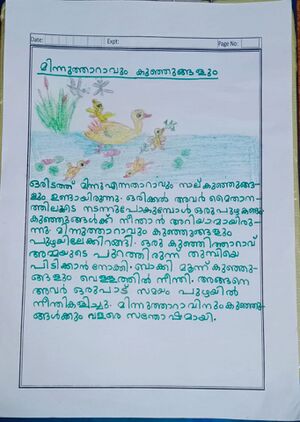 Date: Expt: Page No:
മിന്നുത്താറാവും കുഞ്ഞുങ്ങളും
ഒരിടത്ത് മിന്നുഎന്നതാറാവും നാല്കുഞ്ഞുങ്ങ-
ളും ഉണ്ടായിരുന്നു. ഒരിക്കൽ അവർ മൈതാന-
ത്തിലൂടെ നടന്നുപോകുമ്പോൾ ഒരുപുഴകണ്ടു.
കുഞ്ഞുങ്ങൾക്ക് നീന്താൻ അറിയാമായിരു-
ന്നു. മിന്നുത്താറാവും കുഞ്ഞുങ്ങളും
പുഴയിലേക്കിറങ്ങി. ഒരു കുഞ്ഞിത്താറാവ്
അമ്മയുടെ പുറത്തിരുന്ന് തുമ്പിയെ
പിടിക്കാൻ നോക്കി. ബാക്കി മൂന്ന് കുഞ്ഞു-
ങ്ങളും വെള്ളത്തിൽ നീന്തി. അങ്ങനെ
അവർ ഒരുപാട് സമയം പുഴയിൽ
നീന്തികളിച്ചു. മിന്നുത്താറാവിനും കുഞ്ഞു-
ങ്ങൾക്കും വളരെ സന്തോഷമായി.